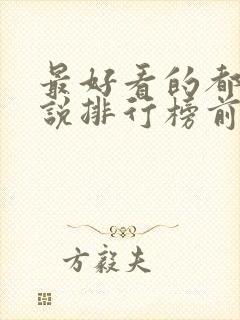 最好看的都
説排行榜前
方毅夫